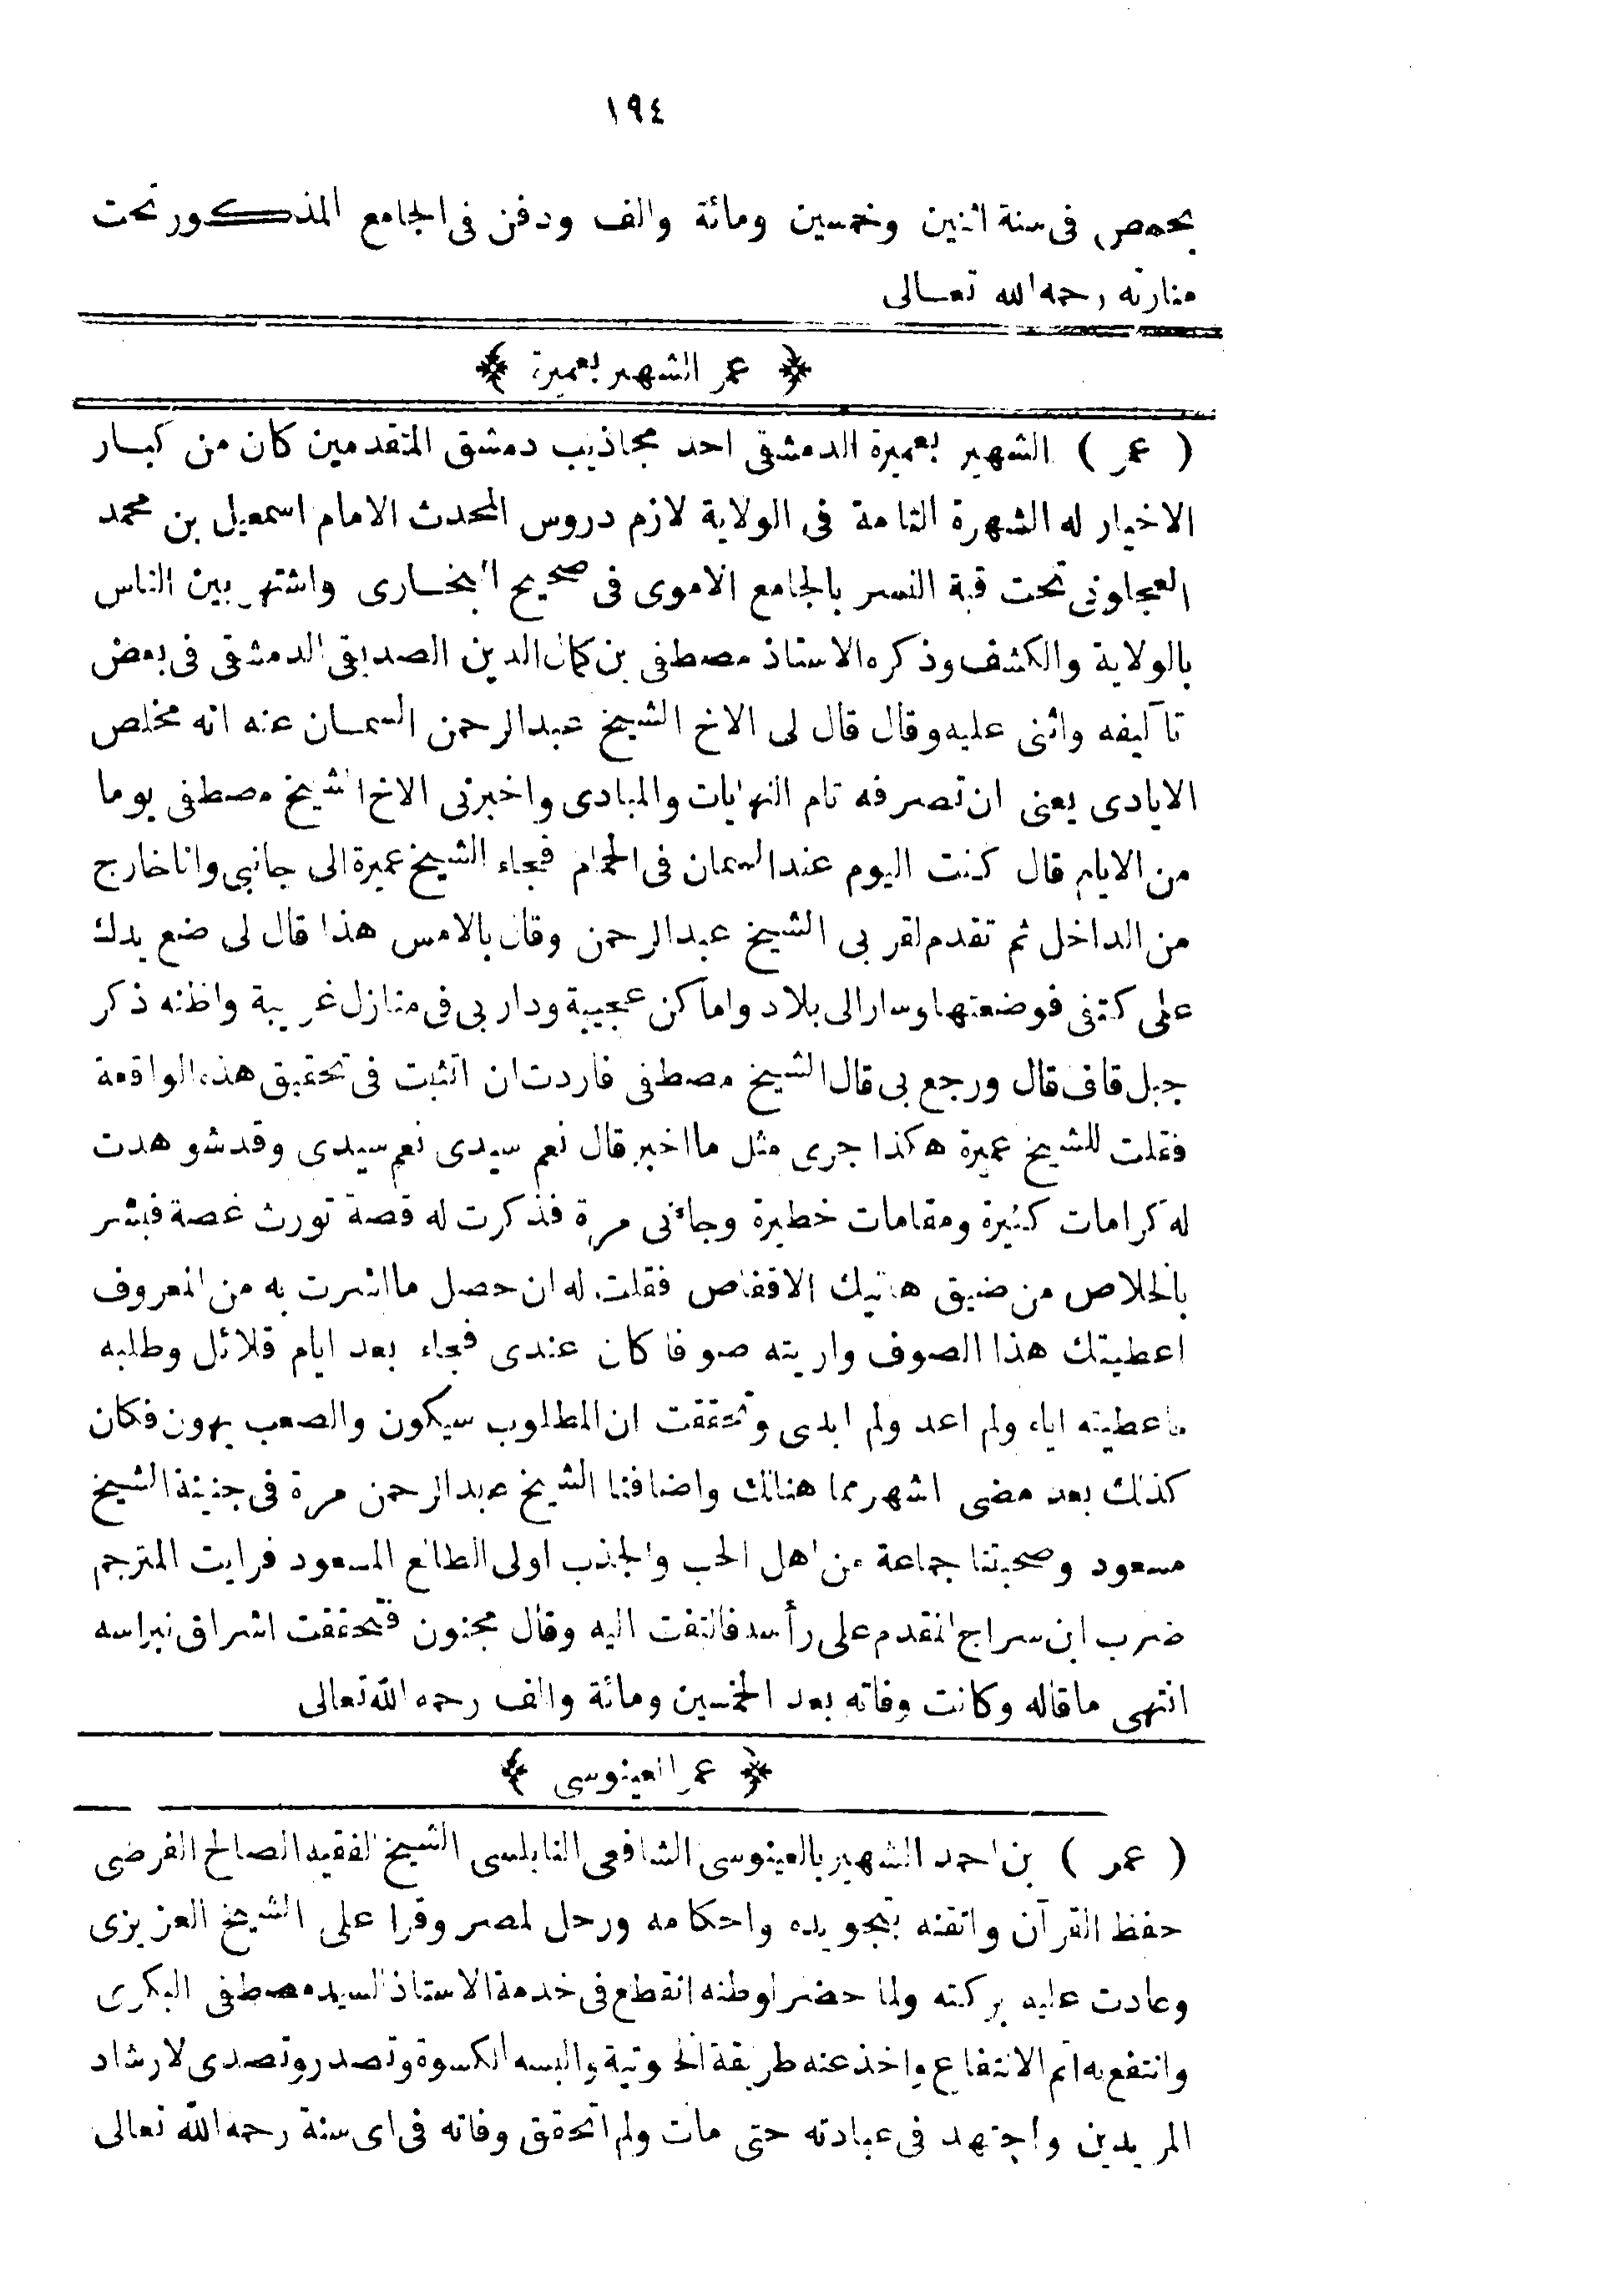 ١٩٤
بحمص فى سنة اثنين وخمسين ومائة والف ودفن فى الجامع المذكور تحت
منارته رحمه الله تعالى
﴿ عمر الشهير بعميرة ﴾
( عمر ) الشهير بعميرة الدمشقى احد مجاذيب دمشق المتقدمين كان من كبار
الاخيار له الشهرة التامة فى الولاية لازم دروس المحدث الامام اسمعيل بن محمد
العجلونى تحت قبة النسر بالجامع الاموى فى صحيح البخارى واشتهر بين الناس
بالولاية والكشف وذكره الاستاذ مصطفى بن كمال الدين الصديقى الدمشقى فى بعض
تآليفه واثنى عليه وقال قال لى الاخ الشيخ عبدالرحمن السمان عنه انه مخلص
الايادى يعنى ان تصرفه تام النهايات والمبادى واخبرنى الاخ الشيخ مصطفى يوما
من الايام قال كنت اليوم عندالسمان فى الحمام فجاء الشيخ عميرة الى جانبى وانا خارج
من الداخل ثم تقدم لقربى الشيخ عبدالرحمن وقال بالامس هذا قال لى ضع يدك
على كتفى فوضعتها وسار الى بلاد واماكن عجيبة ودار بى فى منازل غريبة واظنه ذكر
جبل قاف قال ورجع بى قال الشيخ مصطفى فاردت ان اتثبت فى تحقيق هذه الواقعة
فقلت للشيخ عميرة هكذا جرى مثل ما اخبر قال نعم سيدى نعم سيدى وقد شوهدت
له كرامات كثيرة ومقامات خطيرة وجاءنى مرة فذكرت له قصة تورث غصة فبشر
بالخلاص من ضيق هاتيك الاقفاص فقلت له ان حصل ما اشرت به من المعروف
اعطيتك هذا الصوف واريته صوفا كان عندى فجاء بعد ايام قلائل وطلبه
فاعطيته اياه ولم اعد ولم ابدى وتحققت ان المطلوب سيكون والصعب يهون فكان
كذلك بعد مضى اشهر مما هنالك واضافنا الشيخ عبدالرحمن مرة فى جنينة الشيخ
مسعود وصحبتنا جماعة من اهل الحب والجذب اولى الطالع المسعود فرايت المترجم
ضرب ابن سراج المتقدم على رأسه فالتفت اليه وقال مجنون فتحققت اشراق نبراسه
انتهى ماقاله وكانت وفاته بعد الخمسين ومائة والف رحمه الله تعالى
﴿ عمر العينوسى ﴾
( عمر ) بن احمد الشهير بالعينوسى الشافعى النابلسى الشيخ الفقيه الصالح الفرضى
حفظ القرآن واتقنه بتجويده واحكامه ورحل لمصر وقرا على الشيخ العزيزى
وعادت عليه بركته ولما حضر لوطنه انقطع فى خدمة الاستاذ السيد مصطفى البكرى
وانتفع به اتم الانتفاع واخذ عنه طريقة الخلوتية والبسه الكسوة وتصدر وتصدى لارشاد
المريدين واجتهد فى عبادته حتى مات ولم اتحقق وفاته فى اى سنة رحمه الله تعالى